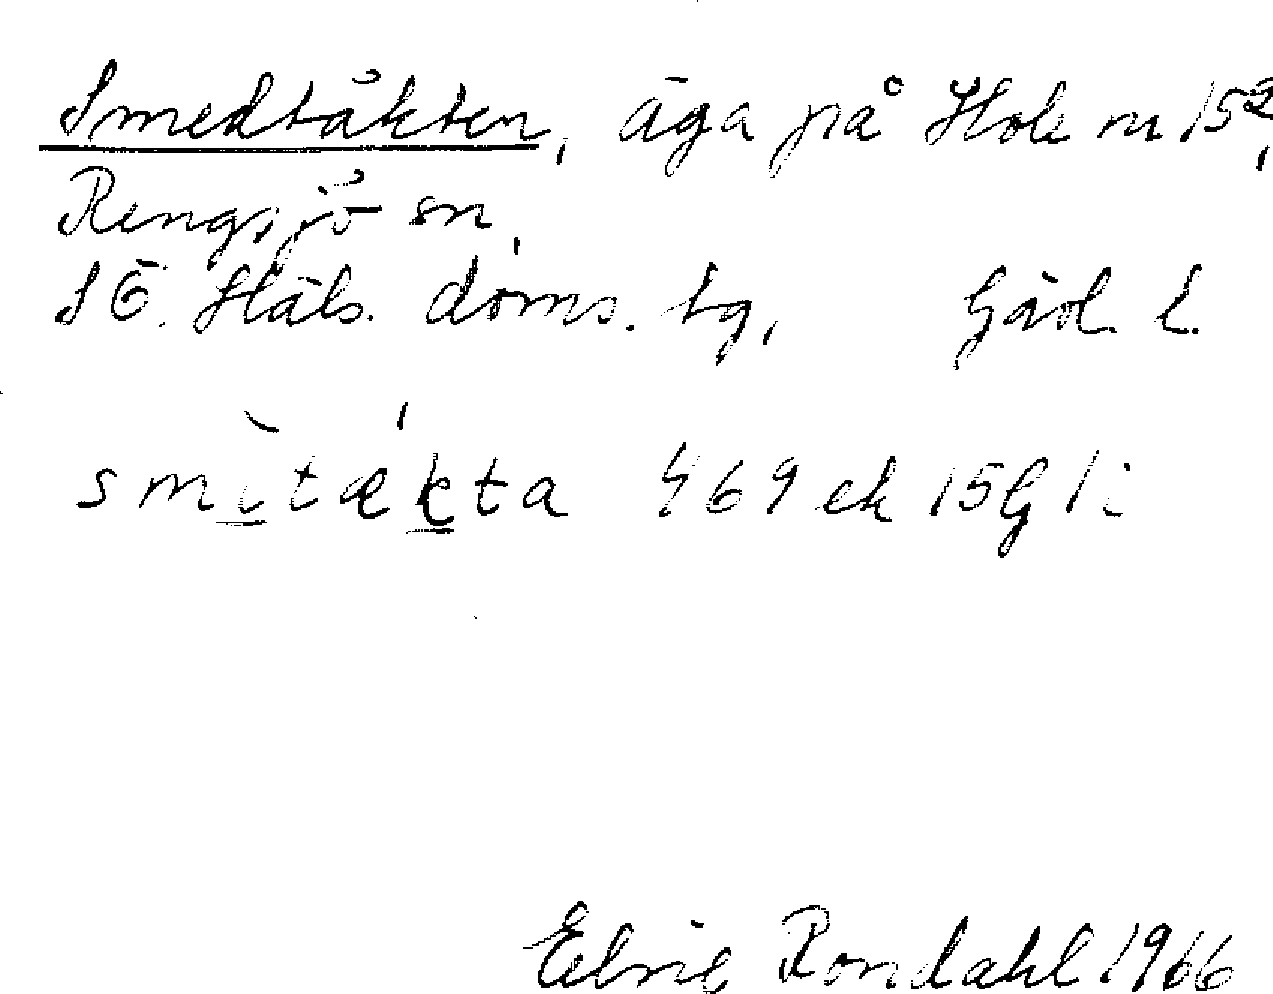 Smedtäkten, äga på Hole nr 15²,
Rengsjö sn,
SÖ. Häls. doms. tg, Gäd. l.
smitækta 469 ek 15G 1:
Elvie Rondahl 1966